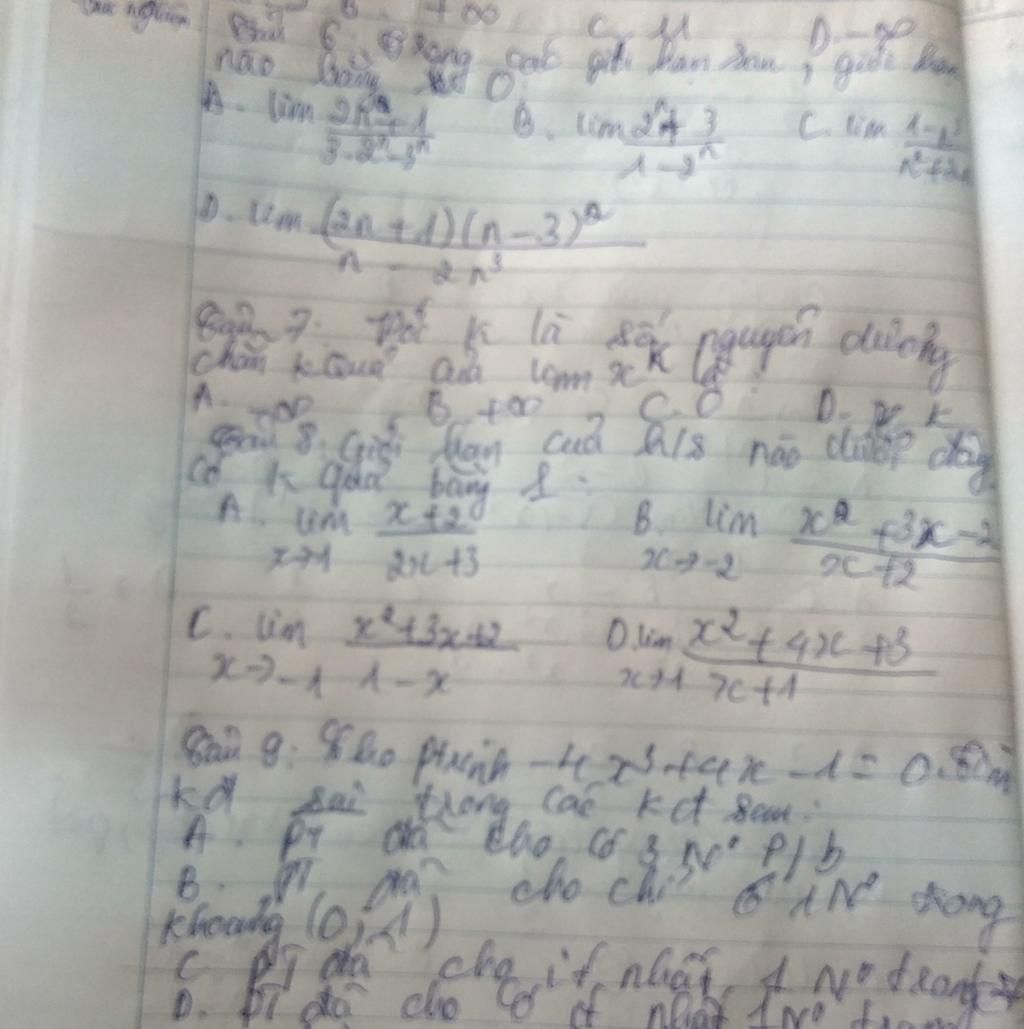 B. +∞ C. 11 D. -∞
Câu 6: Trong các giới hạn sau, giới hạn
nào bằng 0
A. lim (2^n + 1)/(3·2^n - 3^n) B. lim (2^n + 3)/(1 - 2^n) C. lim (1 - n^3)/(n^2 + 2n
D. lim (2n + 1)(n - 3)^2/(n - 2n^3)
Câu 7: Với k là số nguyên dương
chẵn kquả của lim x^k là:
A. -∞ B. +∞ C. 0 D. k
Câu 8. Giới hạn của h/s nào dưới đây
có k quả bằng 1:
A. lim x→1 (x + 2)/(2x + 3) B. lim x→-2 (x^2 + 3x - 2)/(x + 2)
C. lim x→-1 (x^2 + 3x + 2)/(1 - x) D. lim x→1 (x^2 + 4x + 3)/(x + 1)
Câu 9: Cho ptrình -4x^3 + 4x - 1 = 0. Tìm
kđ sai trong các kđ sau:
A. PT đã cho có 3 N° P/b
B. PT đã cho chỉ có 1 N° trong
khoảng (0; 1)
C. PT đã cho ít nhất 1 N° trong
D. PT đã cho có ít nhất 1 N° trong